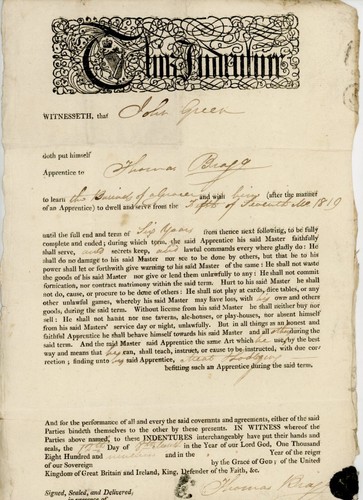 This Indenture
WITNESSETH, that John Green
doth put himself
Apprentice to Thomas Bragg
to learn the and with him (after the manner
of an Apprentice) to dwell and serve from the Fifth of Seventh Mo 1819
until the full end and term of Six Years from thence next following, to be fully
complete and ended; during which term, the said Apprentice his said Master faithfully
shall serve, secrets keep, and lawful commands every where gladly do: He
shall do no damage to his said Master nor see to be done by others, but that he to his
power shall let or forthwith give warning to his said Master of the same: He shall not waste
the goods of his said Master nor give or lend them unlawfully to any: He shall not commit
fornication, nor contract matrimony within the said term. Hurt to his said Master he shall
not do, cause, or procure to be done of others: He shall not play at cards, dice tables, or any
other unlawful games, whereby his said Master may have loss, with his own and others
goods, during the said term. Without license from his said Master he shall neither buy nor
sell: He shall not haunt nor use taverns, ale-houses, or play-houses, nor absent himself
from his said Masters' service day or night, unlawfully. But in all things as an honest and
faithful Apprentice he shall behave himself towards his said Master and all during the
said term. And the said Master said Apprentice the same Art which he use, by the best
way and means that he can, shall teach, instruct, or cause to be instructed, with due cor-
rection; finding unto his said Apprentice, Meat
befitting such an Apprentice during the said term.
And for the performance of all and every the said covenants and agreements, either of the said
Parties bindeth themselves to the other by these presents. IN WITNESS whereof the
Parties above named, to these INDENTURES interchangeably have put their hands and
seals, the Day of in the Year of our Lord God, One Thousand
Eight Hundred and nineteen and in the Year of the reign
of our Sovereign by the Grace of God; of the United
Kingdom of Great Britain and Ireland, King, Defender of the Faith, &c.
Thomas Bragg
Signed, Sealed, and Delivered,
in presence of